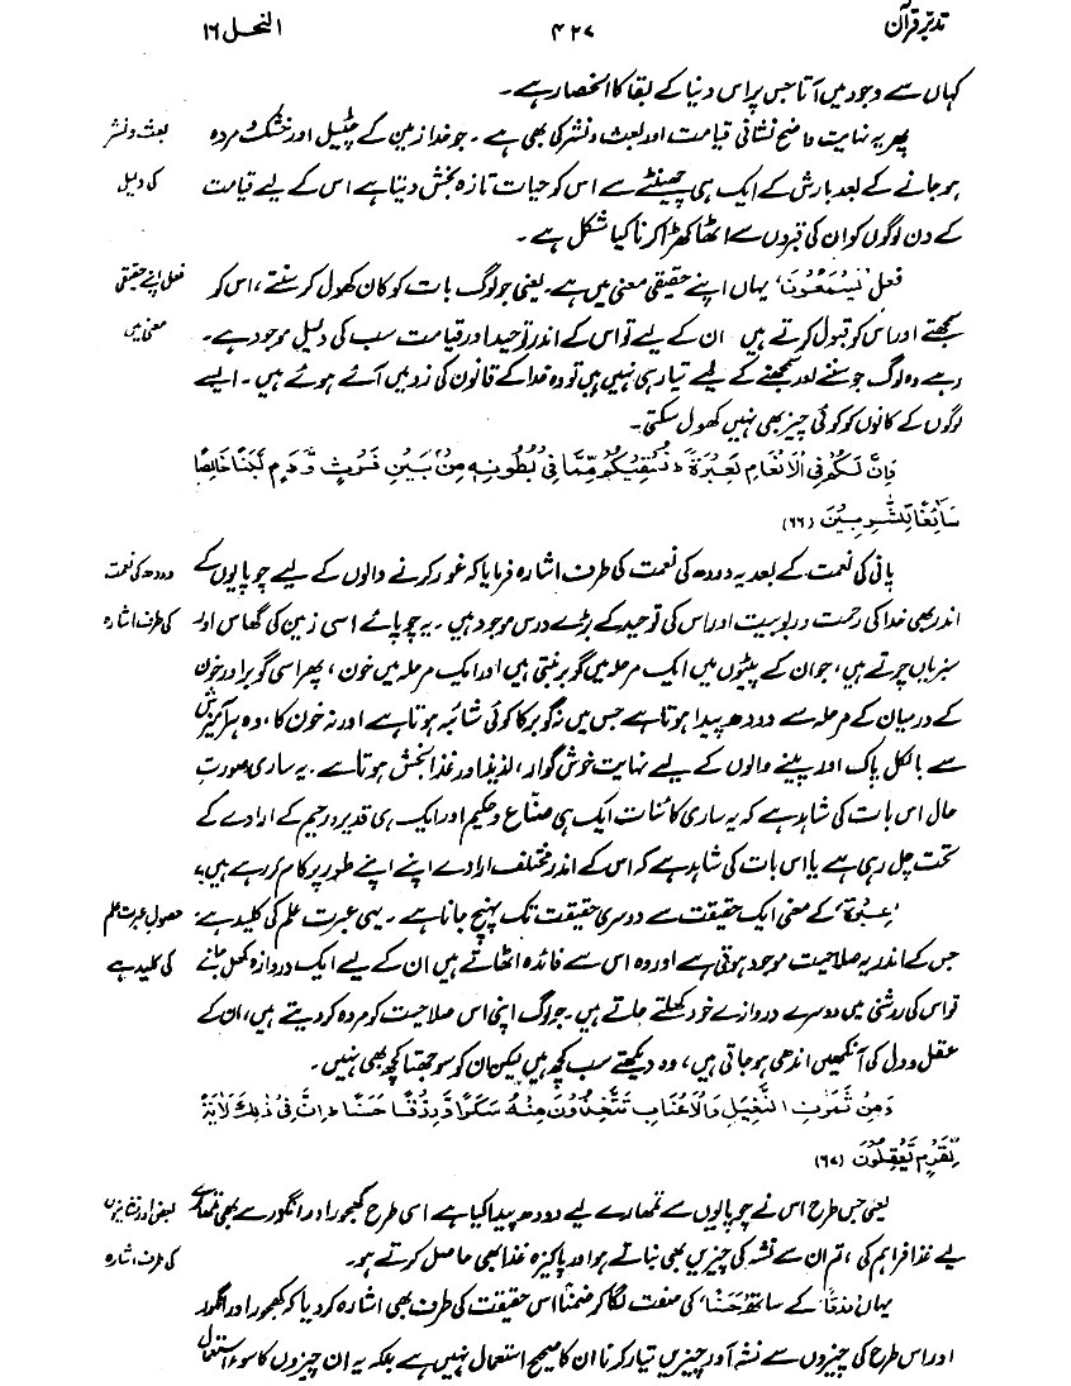 تدبّرِ قرآن ۴۲۷ النحل ۱۶
کہاں سے وجود میں آتا جس پر اس دنیا کے بقا کا انحصار ہے۔
پھر یہ نہایت واضح نشانی قیامت اور بعث و نشر کی بھی ہے۔ جو خدا زمین کے چٹیل اور خشک و مردہ
بعث و نشر
ہو جانے کے بعد بارش کے ایک ہی چھینٹے سے اس کو حیات تازہ بخش دیتا ہے اس کے لیے قیامت
کی دلیل
کے دن لوگوں کو ان کی قبروں سے اٹھا کھڑا کرنا کیا مشکل ہے۔
فعل 'يَسْمَعُوْنَ' یہاں اپنے حقیقی معنی میں ہے۔ یعنی جو لوگ بات کو کان کھول کر سنتے، اس کو
فعل اپنے حقیقی
سمجھتے اور اس کو قبول کرتے ہیں ان کے لیے تو اس کے اندر توحید اور قیامت سب کی دلیل موجود ہے۔
معنی میں
رہے وہ لوگ جو سننے اور سمجھنے کے لیے تیار ہی نہیں ہیں تو وہ خدا کے قانون کی زد میں آئے ہوئے ہیں۔ ایسے
لوگوں کے کانوں کو کوئی چیز بھی نہیں کھول سکتی۔
وَاِنَّ لَكُمْ فِي الْاَنْعَامِ لَعِبْرَةً ؕ نُسْقِيْكُمْ مِّمَّا فِيْ بُطُوْنِهٖ مِنْۢ بَيْنِ فَرْثٍ وَّدَمٍ لَّبَنًا خَالِصًا
سَآئِغًا لِّلشّٰرِبِيْنَ (۶۶)
پانی کی نعمت کے بعد یہ دودھ کی نعمت کی طرف اشارہ فرمایا کہ غور کرنے والوں کے لیے چوپایوں کے
دودھ کی نعمت
اندر بھی خدا کی رحمت و ربوبیت اور اس کی توحید کے بڑے درس موجود ہیں۔ یہ چوپائے اسی زمین کی گھاس اور
کی طرف اشارہ
سبزیاں چرتے ہیں، جو ان کے پیٹوں میں ایک مرحلہ میں گوبر بنتی ہیں اور ایک مرحلہ میں خون، پھر اسی گوبر اور خون
کے درمیان کے مرحلہ سے دودھ پیدا ہوتا ہے جس میں نہ گوبر کا کوئی شائبہ ہوتا ہے اور نہ خون کا، وہ ہر آمیزش
سے بالکل پاک اور پینے والوں کے لیے نہایت خوش گوار، لذیذ اور غذا بخش ہوتا ہے۔ یہ ساری صورتِ
حال اس بات کی شاہد ہے کہ یہ ساری کائنات ایک ہی صنّاع و حکیم اور ایک ہی قدیر و رحیم کے ارادے کے
تحت چل رہی ہے یا اس بات کی شاہد ہے کہ اس کے اندر مختلف ارادے اپنے اپنے طور پر کام کر رہے ہیں؟
'عِبْرَة' کے معنی ایک حقیقت سے دوسری حقیقت تک پہنچ جانا ہے۔ یہی عبرت علم کی کلید ہے،
حصولِ عبرت علم
جس کے اندر یہ صلاحیت موجود ہوتی ہے اور وہ اس سے فائدہ اٹھاتے ہیں ان کے لیے ایک دروازہ کھل جانے
کی کلید ہے
تو اس کی روشنی میں دوسرے دروازے خود کھلتے جاتے ہیں۔ جو لوگ اپنی اس صلاحیت کو مردہ کر دیتے ہیں، ان کے
عقل و دل کی آنکھیں اندھی ہو جاتی ہیں، وہ دیکھتے سب کچھ ہیں لیکن ان کو سوجھتا کچھ بھی نہیں۔
وَمِنْ ثَمَرٰتِ النَّخِيْلِ وَالْاَعْنَابِ تَتَّخِذُوْنَ مِنْهُ سَكَرًا وَّرِزْقًا حَسَنًا ؕ اِنَّ فِيْ ذٰلِكَ لَاٰيَةً
لِّقَوْمٍ يَّعْقِلُوْنَ (۶۷)
یعنی جس طرح اس نے چوپایوں سے تمھارے لیے دودھ پیدا کیا ہے اسی طرح کھجور اور انگور سے بھی تمھارے
بعض اور نشانیوں
لیے غذا فراہم کی، تم ان سے نشہ کی چیزیں بھی بناتے ہو اور پاکیزہ غذا بھی حاصل کرتے ہو۔
کی طرف اشارہ
یہاں 'رِزْقًا' کے ساتھ 'حَسَنًا' کی صفت لگا کر ضمنًا اس حقیقت کی طرف بھی اشارہ کر دیا کہ کھجور اور انگور
اور اس طرح کی چیزوں سے نشہ آور چیزیں تیار کرنا ان کا صحیح استعمال نہیں ہے بلکہ یہ ان چیزوں کا سوء استعمال